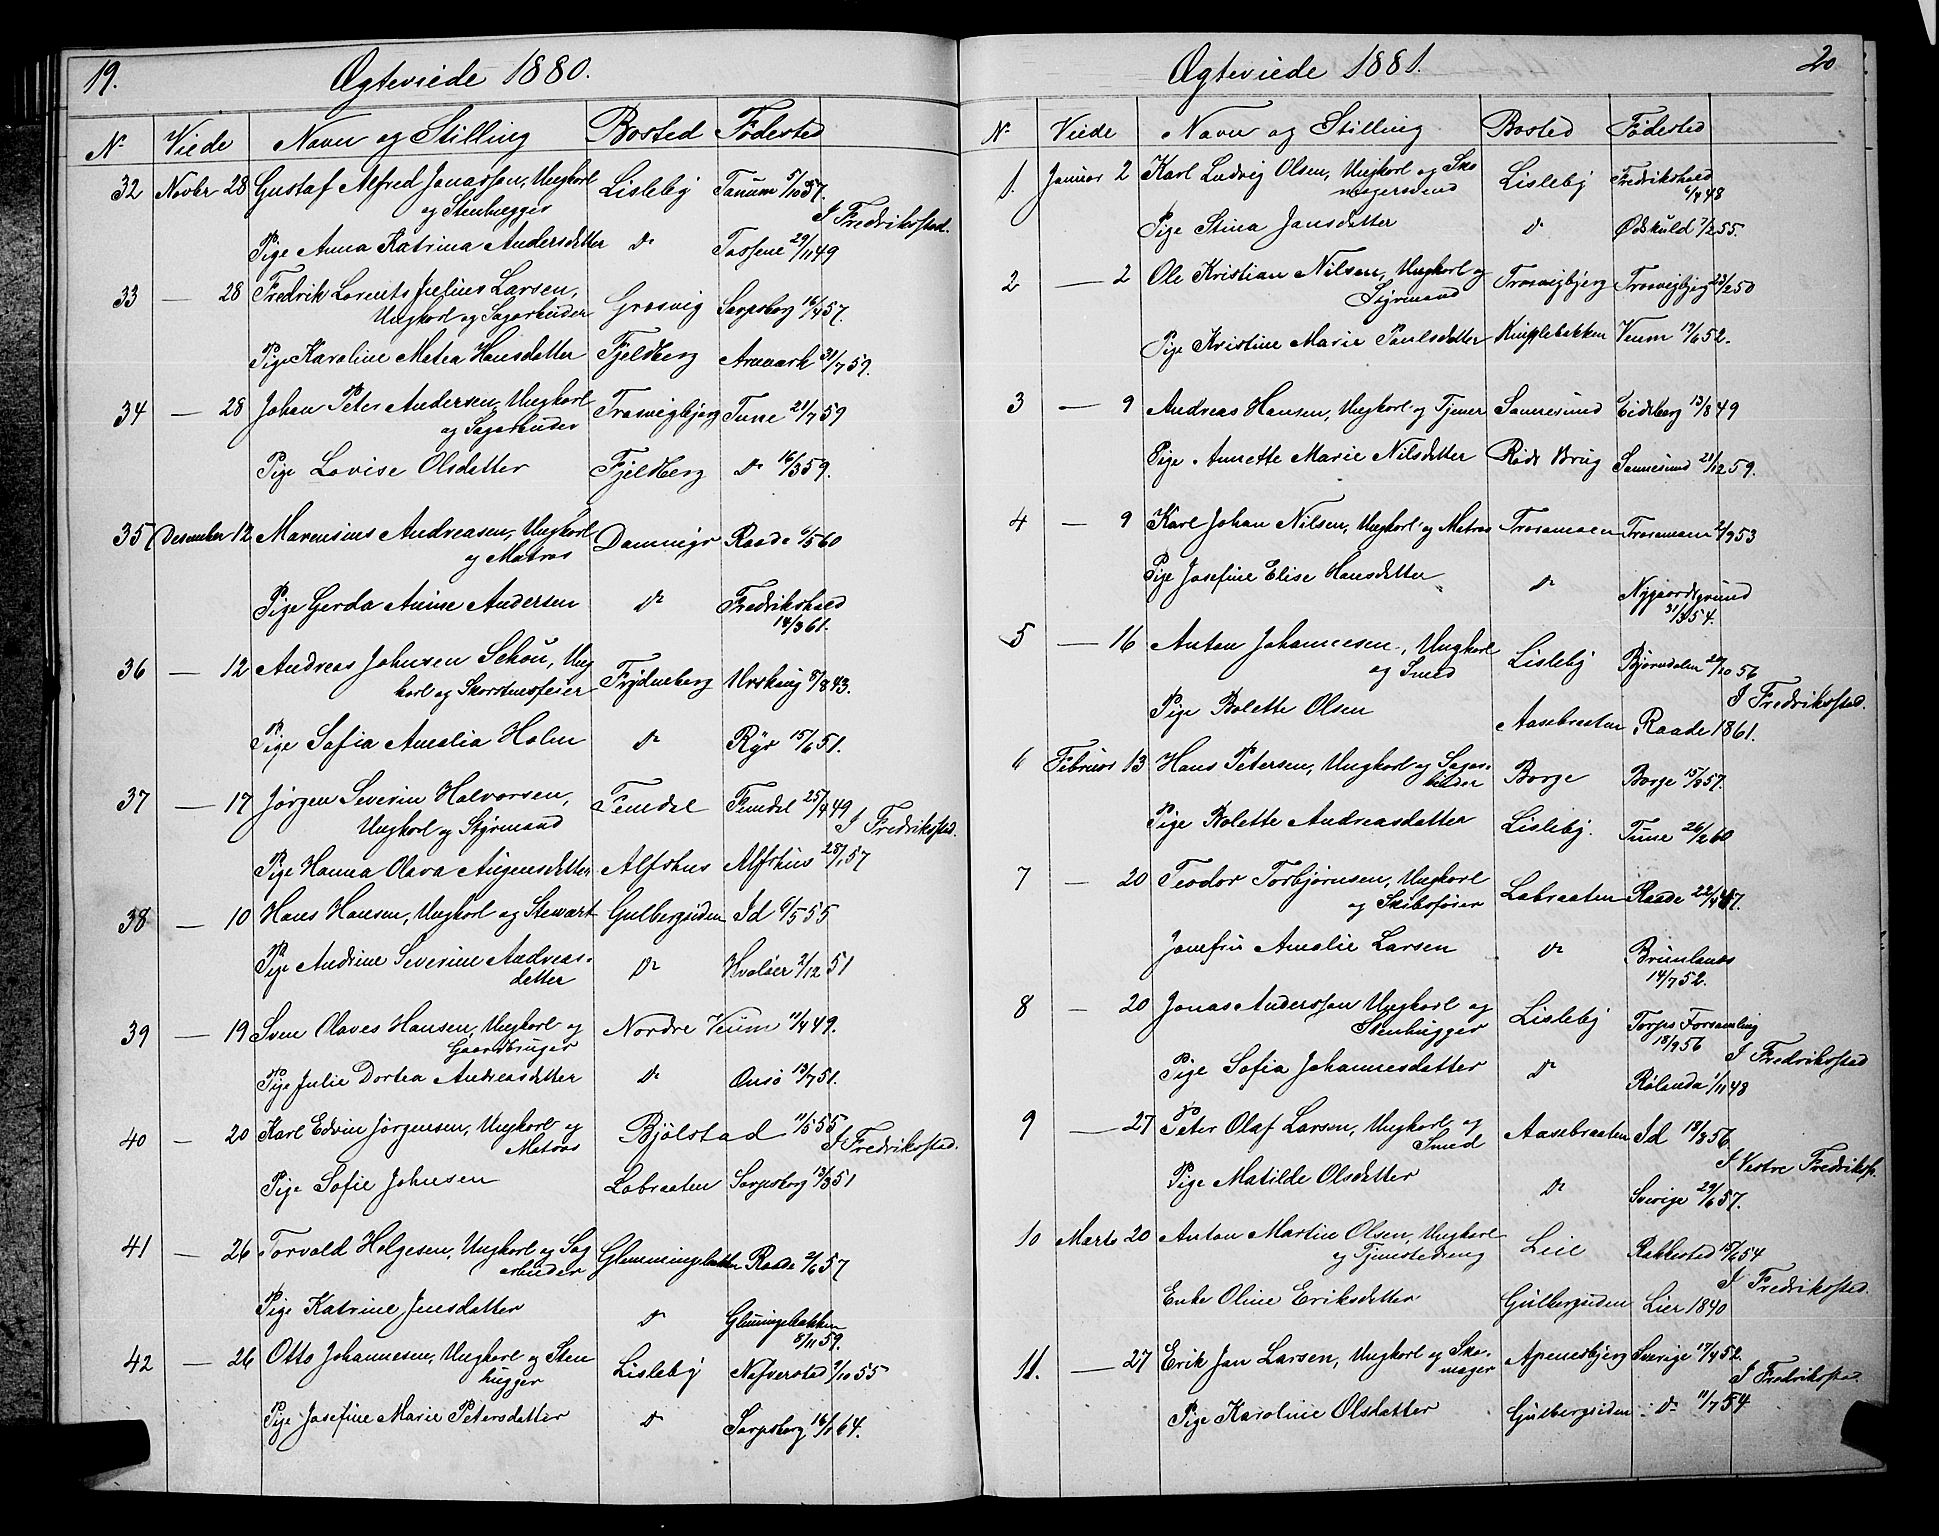 19.
Ægteviede 1880.
No Viede Navn og Stilling Bosted Fødested
32 Novbr 28 Gustaf Alfred Jonasson, Ungkorl Lisleby Tanum 5/10 57.
og Stenhugger
I Fredrikstad.
Pige Anna Katrina Andersdetter do Tossene 29/11 49
33 — 28 Fredrik Lorents Julius Larsen, Gresvig Sarpsborg 16/4 57.
Ungkorl og Sagarbuder
Pige Karoline Matea Hansdatter Fjeldberg Aremark 31/7 59.
34 — 28 Johan Peter Andersen, Ungkorl Trosvigbjerg Tune 21/7 59
og Sagarbuder
Pige Lovise Olsdetter Fjeldberg do 16/3 59.
35 Desember 12 Marensius Andreasen, Ungkorl Dammyr Raade 6/5 60
og Matros
Pige Gerda Anine Andersen do Fredrikshald
14/3 61.
36 — 12 Andreas Johnsen Schou, Ung
korl og Skorstensfeier Frydenberg Urskoug 5/8 43.
Pige Sofia Amalia Holm do Ryr 15/6 51.
37 — 17 Jørgen Severin Halvorsen, Femdal Femdal 25/4 49
Ungkorl og Styrmand
I Fredrikstad.
Pige Hanna Olava Augensdetter Alfshus Alfshus 28/1 57
38 — 10 Hans Hansen, Ungkorl og Stewart Gulbergsiden Id 6/5 55
Pige Andrine Severine Andreas-
detter do Hvaløer 2/12 51
39 — 19 Sven Olaves Hansen, Ungkorl og Nordre Veum 11/4 49.
Gaardbruger
Pige Julie Dortea Andreasdetter do Onsø 13/7 51.
40 — 20 Karl Edvin Jørgensen, Ungkorl og Bjølstad 11/5 55
Matros
I Fredrikstad.
Pige Sofie Johnsen Labraaten Sarpsborg 13/3 51
41 — 26 Torvald Helgesen, Ungkorl og Sag
arbuder Glemmingebakken Raade 2/6 57
Pige Katrine Jensdatter do Glemingebakken
8/11 59.
42 — 26 Otto Johannesen, Ungkorl og Sten
hugger Lisleby Nafverstad 7/10 55
Pige Josefine Marie Petersdatter do Sarpsborg 16/1 64.
20
Ægteviede 1881.
No Viede Navn og Stilling Bosted Fødested
1. Januar 2 Karl Ludvig Olsen, Ungkorl og Sko
magersvend Lisleby Fredrikshald
6/4 48
Pige Stina Jansdatter do Ødskuld 7/2 55.
2 — 2 Ole Kristian Nilsen, Ungkorl og
Styrmand Trosvigbjerg Trosvigbjerg 23/2 50
Pige Kristine Marie Paulsdatter Knipplebakken Veum 19/6 52.
3 — 9 Andreas Hansen, Ungkorl og Tjener Sannesund Eidsberg 13/8 49
Pige Annette Marie Nilsdetter Røds Brug Sannesund 21/12 59.
4 — 9 Karl Johan Nilsen, Ungkorl og Matros Trosemoen Trosemoen 2/9 53
Pige Josefine Elise Hansdetter do Nygaardsgrund
31/3 54.
5 — 16 Anton Johannesen, Ungkorl
og Smed Lisleby Bjørndalen 20/10 56
I Fredrikstad.
Pige Bolette Olsen Aasebraaten Raade 1861.
6 Februar 13 Hans Petersen, Ungkorl og Sagar-
buder Borge Borge 15/8 57.
Pige Bolette Andreasdatter Lisleby. Tune 26/2 60
7 — 20 Teodor Torbjørnsen, Ungkorl
og Skibsfører Labraaten Raade 22/4 47.
Jomfru Amalie Larsen do Brunlanes
14/7 52.
8 — 20 Jonas Andersson Ungkorl og
Stenhugger Lisleby Torps Forsamling
18/9 56
I Fredrikstad
Pige Sofia Johannesdatter do Rølanda 1/11 48
9 — 27 Peter Olaf Larsen, Ungkorl og
Smed Aasebraaten Id 18/3 56
I Vestre Fredrikst.
Pige Matilde Olsdetter do Sverige 29/6 57.
10 Marts 20 Anton Martin Olsen, Ungkorl
og Tjenestedreng Leie Rakkestad 15/6 54
I Fredrikstad.
Enke Oline Eriksdetter Gulbergsiden Lier 1840
11. — 27 Erik Jan Larsen, Ungkorl og Sko-
mager Apenesbjerg Sverige 17/4 52.
I Fredrikstad.
Pige Karoline Olsdatter Gulbergsiden do 11/7 54